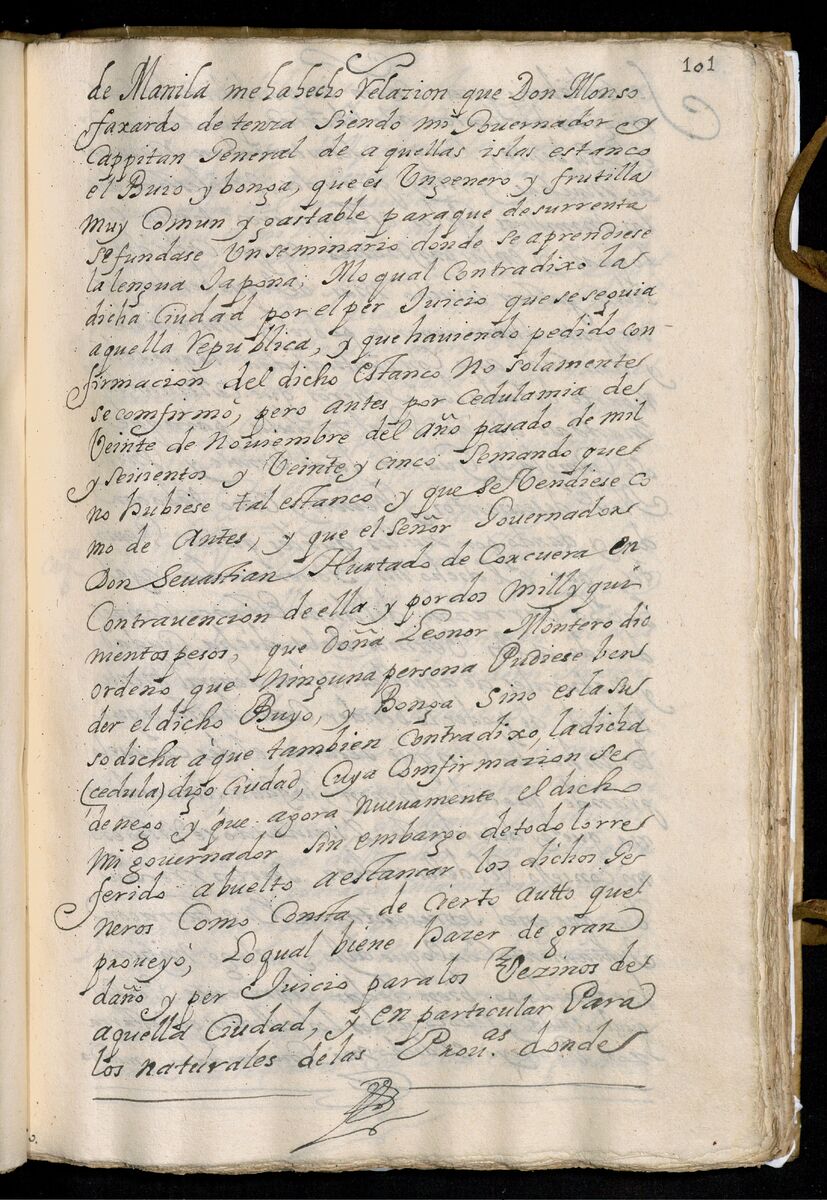 101
de Manila mehahecho Velazion que Don Alonso
faxardo de tenza siendo mi Guernador y
Cappitan General de aquellas islas estanco
el Buio y bonga, que es Ungenero y frutilla
muy Comun y gastable paraque desurrenta
se fundase Unseminario donde se aprendiese
la lengua Iapona; Alo qual Contradixo la
dicha Ciudad por el per Iuicio que se seguia
aquella Republica, y que haviendo pedido con
firmacion del dicho estanco No solamente
se comfirmó, pero antes por Cedulamia de
Veinte de Noviembre del Año pasado de mil
y seisientos y Veinte y cinco semando que
no hubiese tal estancó y que se Vendiese co
mo de Antes, y que el señor Governador
Don Sevastian Hurtado de Corcuera en
Contravencion de ella y por dos mill y qui
nientos pesos, que Doña Leonor Montero dio
ordeno que Ninguna persona Pudiese ben
der el dicho Buyo, y Bonga Sino es la su
so dicha à que tambien Contradixo, la dicha
(cedula) digo Ciudad, Cuya Comfirmazion se
denego y que agora nuevamente el dicho
mi governador sin embargo de todo lo rre
ferido a buelto a estancar los dichos Ge
neros Como Consta de Cierto Autto que
proveyó, Loqual biene hazer de gran
daño y per Iuicio para los Vezinos de
aquella Ciudad, y en particular Para
los naturales de las Prou.as donde